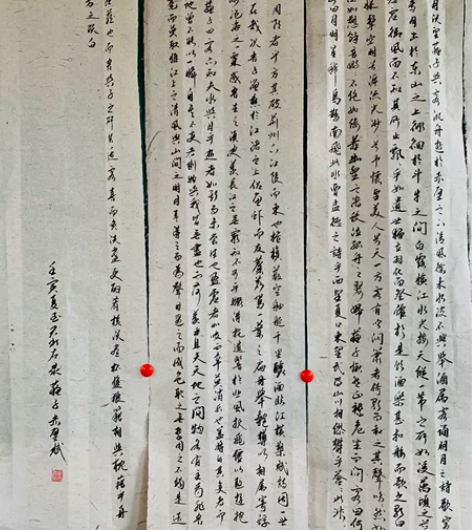 月既望蘇子與客泛舟遊於赤壁之下清風徐來水波不興舉酒屬客誦明月之詩歌窈
焉月出於東山之上徘徊於斗牛之間白露橫江水光接天縱一葦之所如凌萬頃之
虛御風而不知其所止飄飄乎如遺世獨立羽化而登僊於是飲酒樂甚扣舷而歌之歌
槳擊空明兮泝流光渺渺兮予懷望美人兮天一方客有吹洞簫者倚歌而和之其聲嗚嗚然
如訴餘音嫋嫋不絕如縷舞幽壑之潛蛟泣孤舟之嫠婦蘇子愀然正襟危坐而問客曰何
曰月明星稀烏鵲南飛此非曹孟德之詩乎西望夏口東望武昌山川相繆鬱乎蒼蒼此非
周郎者乎方其破荊州下江陵而東也蔽空舳艫千里釃酒臨江橫槊賦詩固一世
在哉況吾子漁樵於江渚之上侶魚蝦而友麋鹿駕一葉之扁舟舉匏樽以相屬寄
滄海之一粟哀吾生之須臾羨長江之無窮知不可乎驟得託遺響於悲風扶飛僊以遨遊抱
蘇子曰客亦知夫水與月乎逝者如斯而未嘗往也盈虛者如彼而卒莫消長也蓋將自其變者而
地曾不能以一瞬自其不變者觀之則物與我皆無盡也而又何羨乎且夫天地之間物各有主苟非吾
毫而莫取惟江上之清風與山間之明月耳得之而為聲目遇之而成色取之無禁用之不竭是造
藏也而吾與子之所共適客喜而笑洗盞更酌肴核既盡杯盤狼籍相與枕藉乎舟
方之既白
壬寅夏至 蘇子赤壁賦